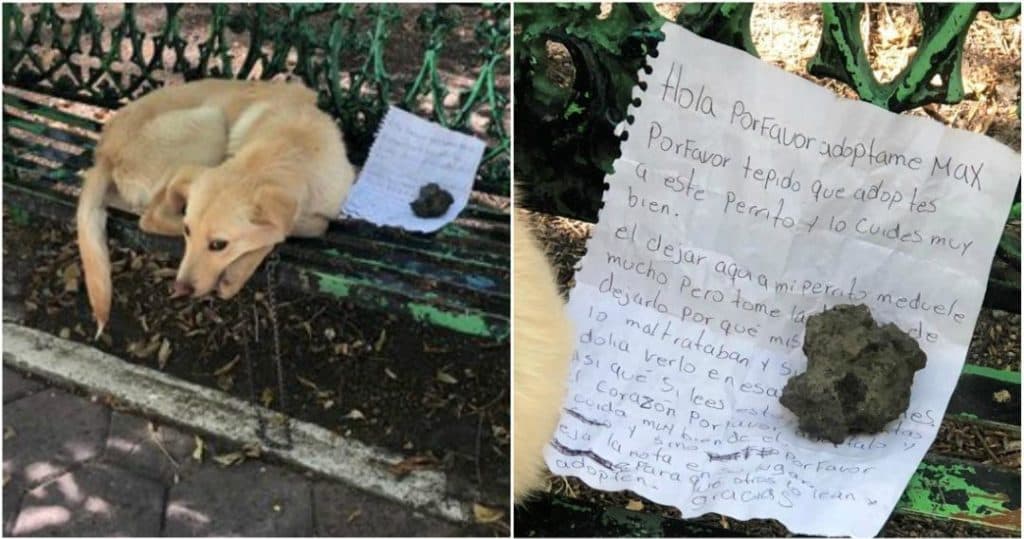 Hola PorFavor adoptame MAX
PorFavor tepido que adoptes
a este Perrito y lo cuides muy
bien.
el dejar aqui a mi perrito meduele
mucho Pero tome la de
dejarlo Por qué mis
lo maltrataban y
dolia verlo en esas
asi qué si lees este
corazón Porfavor
cuida muy bien de el
y sino PorFavor
deja la nota en su lugar
Para que otros lo lean y
adopten.
gracias